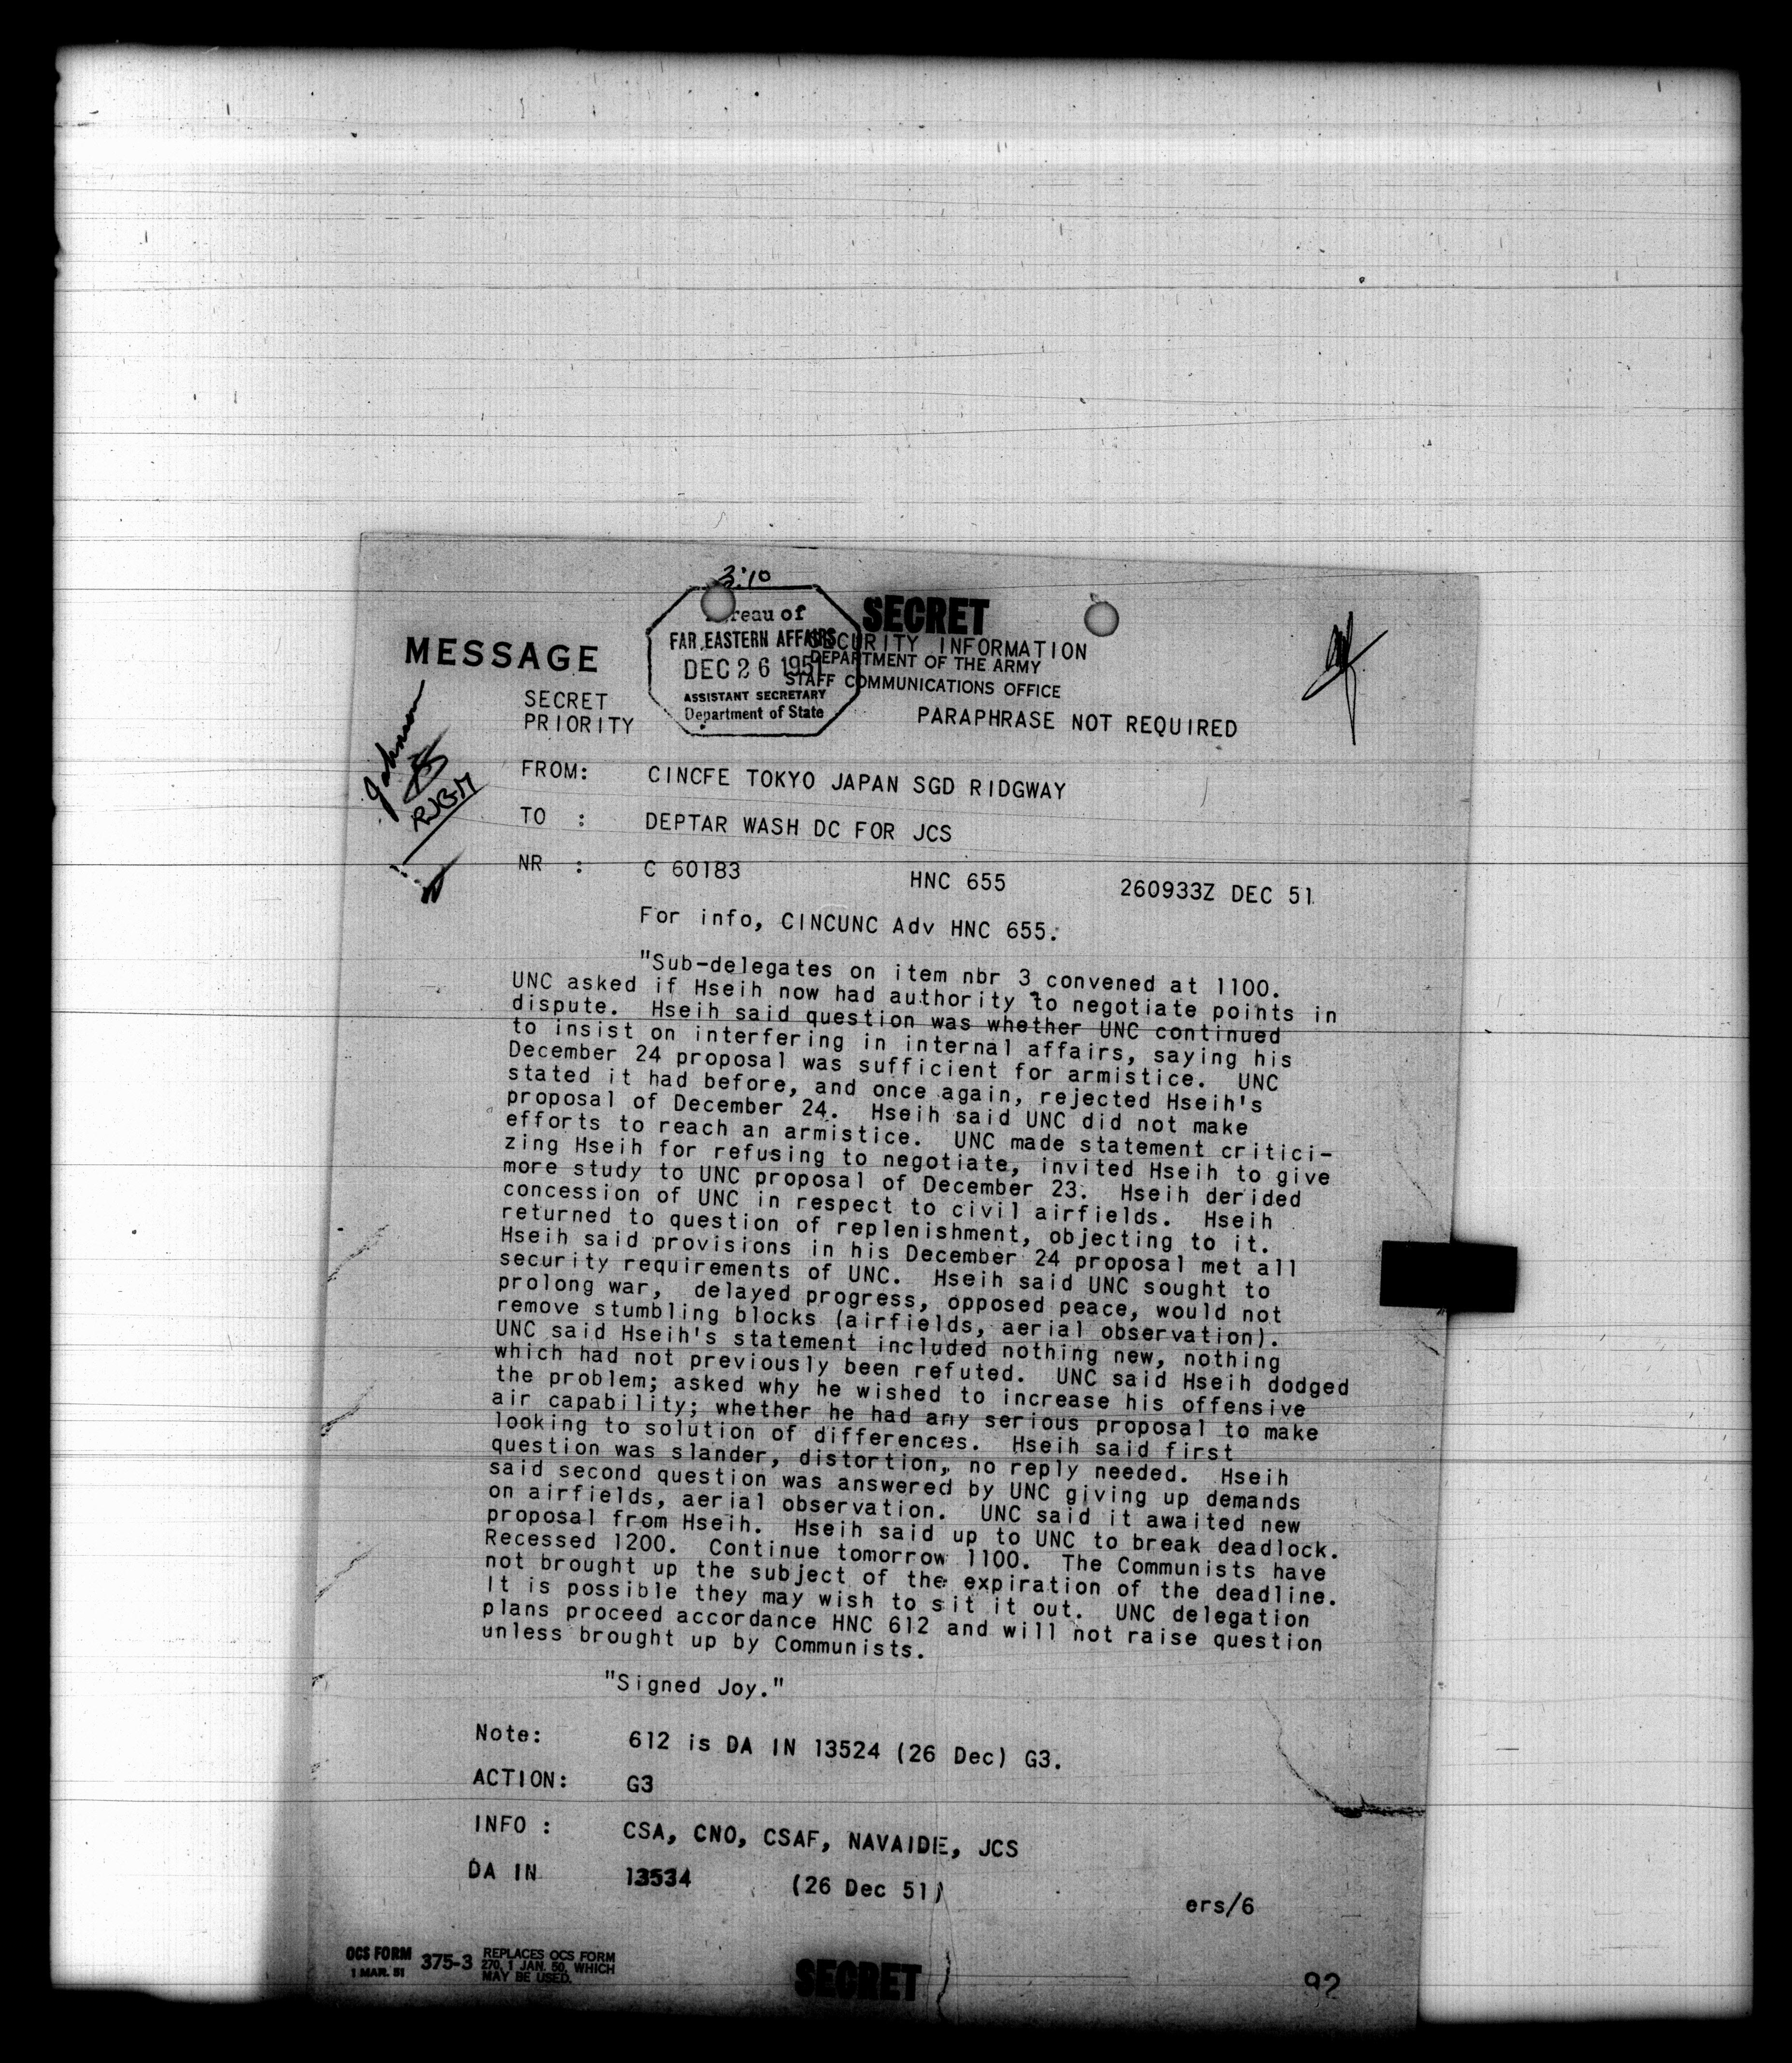 3:10
Bureau of
FAR EASTERN AFFAIRS
DEC 26 1951
ASSISTANT SECRETARY
Department of State
SECRET
SECURITY INFORMATION
DEPARTMENT OF THE ARMY
STAFF COMMUNICATIONS OFFICE
MESSAGE
SECRET
PRIORITY
PARAPHRASE NOT REQUIRED
Johnson
RJBM
FROM: CINCFE TOKYO JAPAN SGD RIDGWAY
TO : DEPTAR WASH DC FOR JCS
NR : C 60183 HNC 655 260933Z DEC 51
For info, CINCUNC Adv HNC 655.
"Sub-delegates on item nbr 3 convened at 1100.
UNC asked if Hseih now had authority to negotiate points in
dispute. Hseih said question was whether UNC continued
to insist on interfering in internal affairs, saying his
December 24 proposal was sufficient for armistice. UNC
stated it had before, and once again, rejected Hseih's
proposal of December 24. Hseih said UNC did not make
efforts to reach an armistice. UNC made statement critici-
zing Hseih for refusing to negotiate, invited Hseih to give
more study to UNC proposal of December 23. Hseih derided
concession of UNC in respect to civil airfields. Hseih
returned to question of replenishment, objecting to it.
Hseih said provisions in his December 24 proposal met all
security requirements of UNC. Hseih said UNC sought to
prolong war, delayed progress, opposed peace, would not
remove stumbling blocks (airfields, aerial observation).
UNC said Hseih's statement included nothing new, nothing
which had not previously been refuted. UNC said Hseih dodged
the problem; asked why he wished to increase his offensive
air capability; whether he had any serious proposal to make
looking to solution of differences. Hseih said first
question was slander, distortion, no reply needed. Hseih
said second question was answered by UNC giving up demands
on airfields, aerial observation. UNC said it awaited new
proposal from Hseih. Hseih said up to UNC to break deadlock.
Recessed 1200. Continue tomorrow 1100. The Communists have
not brought up the subject of the expiration of the deadline.
It is possible they may wish to sit it out. UNC delegation
plans proceed accordance HNC 612 and will not raise question
unless brought up by Communists.
"Signed Joy."
Note: 612 is DA IN 13524 (26 Dec) G3.
ACTION: G3
INFO : CSA, CNO, CSAF, NAVAIDE, JCS
DA IN 13534 (26 Dec 51)
ers/6
OCS FORM 375-3 REPLACES OCS FORM
1 MAR. 51 270, 1 JAN. 50, WHICH
MAY BE USED.
SECRET
92